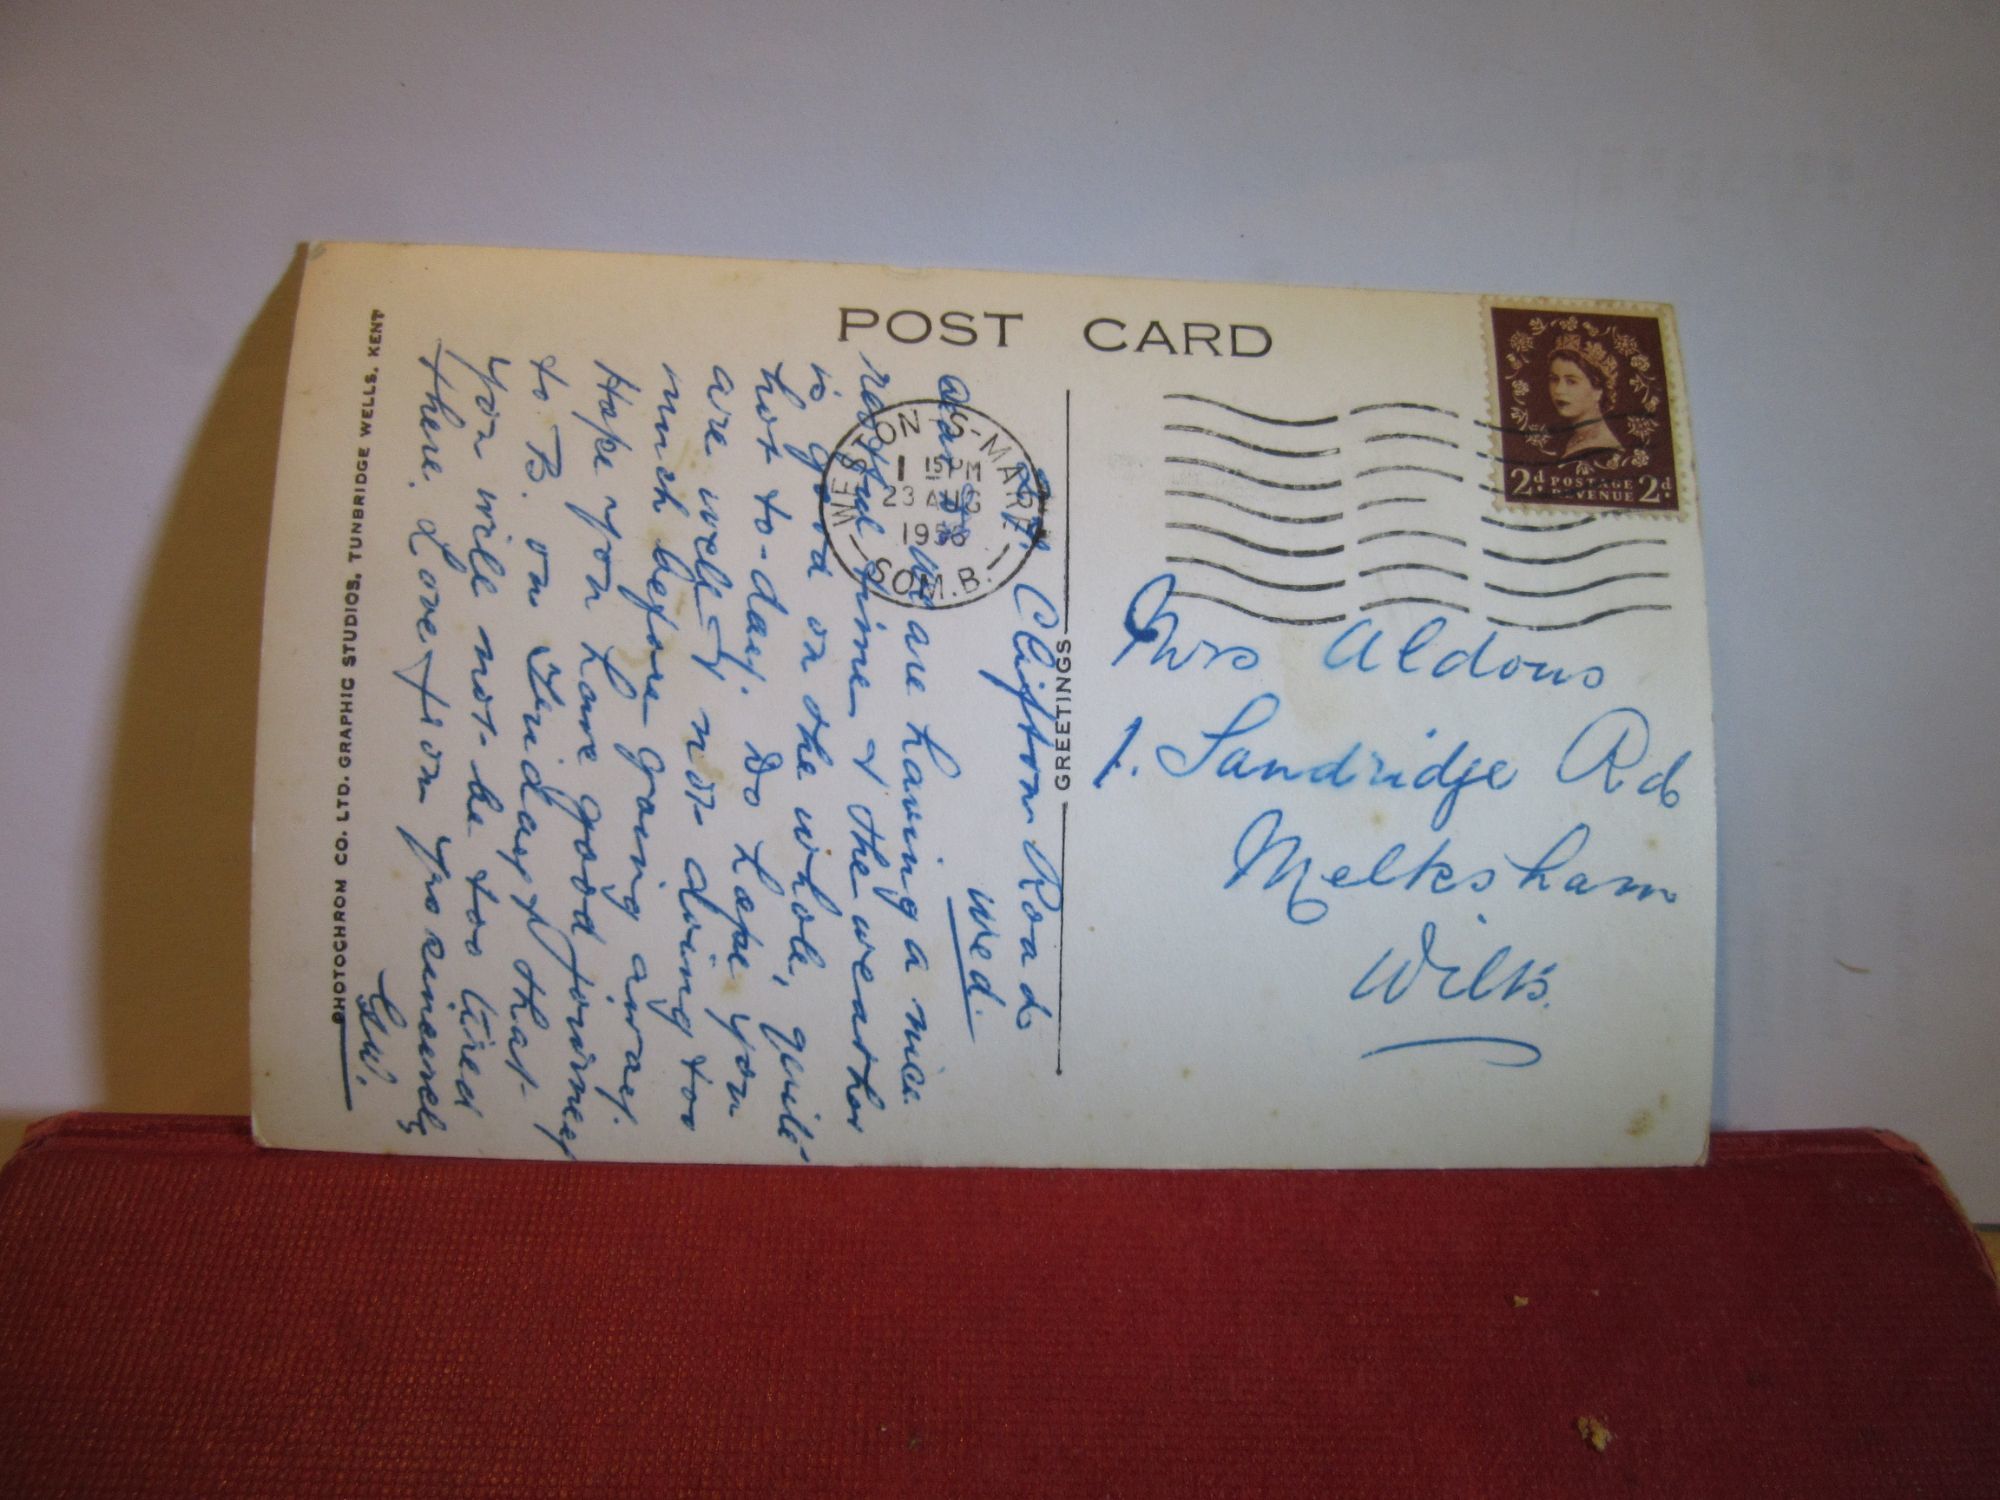 POST CARD
WESTON-S-MARE
1 15 PM
23 AUG
1956
SOM.B.
2d POSTAGE REVENUE 2d
Clifton Road
Wed.
Dear We are having a nice
restful time & the weather
is good on the whole, quite
hot to-day. Do hope you
are well & not doing too
much before going away.
Hope you have good journey
to B. on Friday & that
you will not be too tired
there. Love from yrs sincerely
G.W.
GREETINGS
Mrs Aldous
1. Sandridge Rd
Melksham
Wilts.
PHOTOCHROM CO. LTD. GRAPHIC STUDIOS, TUNBRIDGE WELLS, KENT